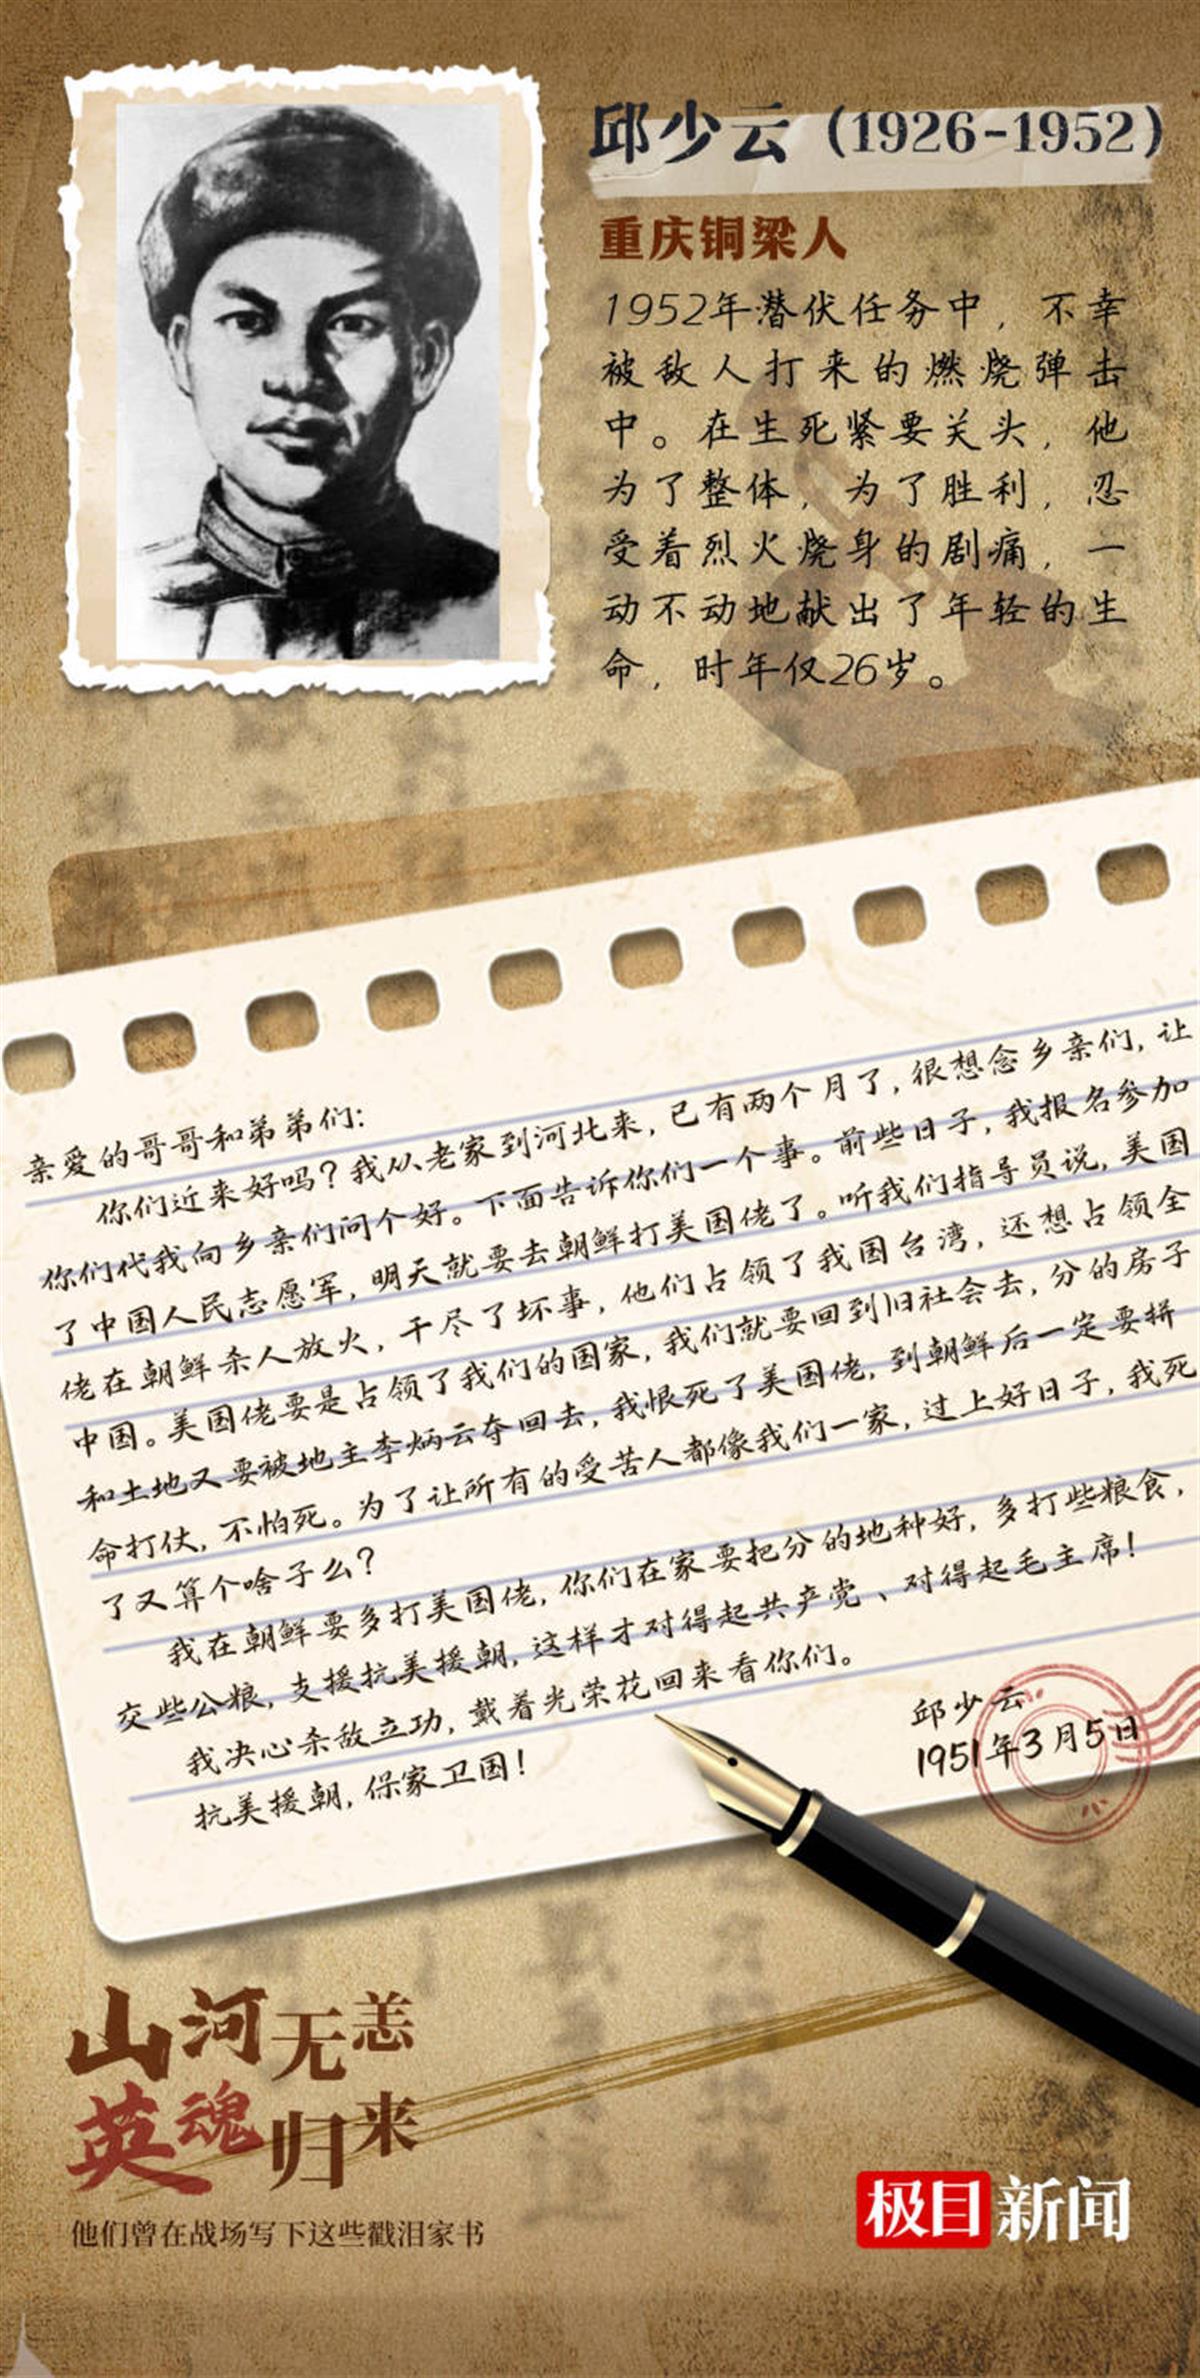 邱少云（1926-1952）
重庆铜梁人
1952年潜伏任务中，不幸
被敌人打来的燃烧弹击
中。在生死紧要关头，他
为了整体，为了胜利，忍
受着烈火烧身的剧痛，一
动不动地献出了年轻的生
命，时年仅26岁。
亲爱的哥哥和弟弟们：
你们近来好吗？我从老家到河北来，已有两个月了，很想念乡亲们，让
你们代我向乡亲们问个好。下面告诉你们一个事。前些日子，我报名参加
了中国人民志愿军，明天就要去朝鲜打美国佬了。听我们指导员说，美国
佬在朝鲜杀人放火，干尽了坏事，他们占领了我国台湾，还想占领全
中国。美国佬要是占领了我们的国家，我们就要回到旧社会去，分的房子
和土地又要被地主李炳云夺回去，我恨死了美国佬，到朝鲜后一定要拼
命打仗，不怕死。为了让所有的受苦人都像我们一家，过上好日子，我死
了又算个啥子么？
我在朝鲜要多打美国佬，你们在家要把分的地种好，多打些粮食，
交些公粮，支援抗美援朝，这样才对得起共产党、对得起毛主席！
我决心杀敌立功，戴着光荣花回来看你们。
抗美援朝，保家卫国！
邱少云
1951年3月5日
山河无恙
英魂归来
他们曾在战场写下这些戳泪家书
极目新闻